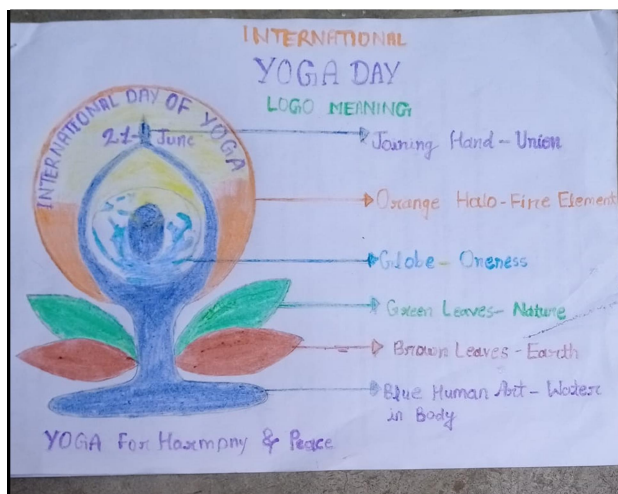 INTERNATIONAL
YOGA DAY
LOGO MEANING
INTERNATIONAL DAY OF YOGA
21 June
Joining Hand - Union
Orange Halo - Fire Element
Globe - Oneness
Green Leaves - Nature
Brown Leaves - Earth
Blue Human Art - Water
in Body
YOGA For Harmony & Peace